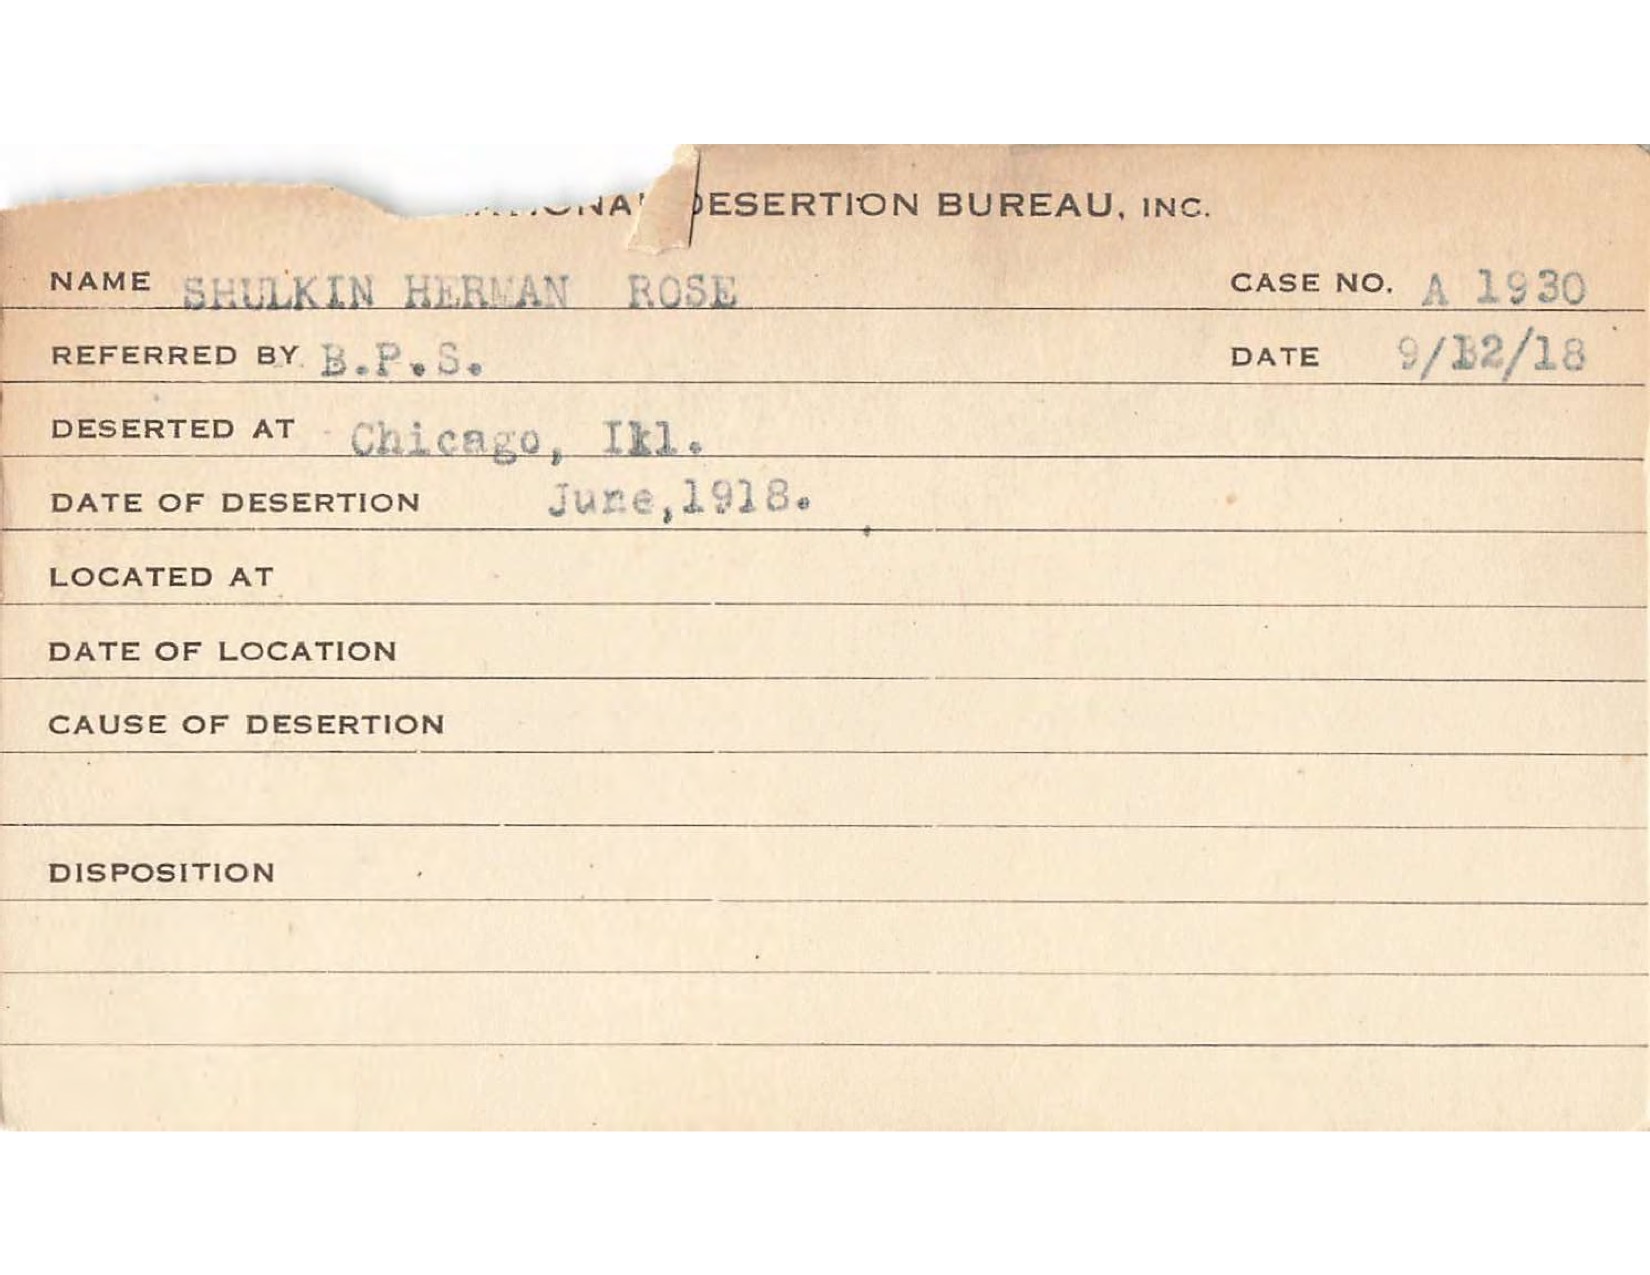 DESERTION BUREAU, INC.
NAME SHULKIN HERMAN ROSE CASE NO. A 1930
REFERRED BY B.P.S. DATE 9/12/18
DESERTED AT Chicago, Ill.
DATE OF DESERTION June,1918.
LOCATED AT
DATE OF LOCATION
CAUSE OF DESERTION
DISPOSITION